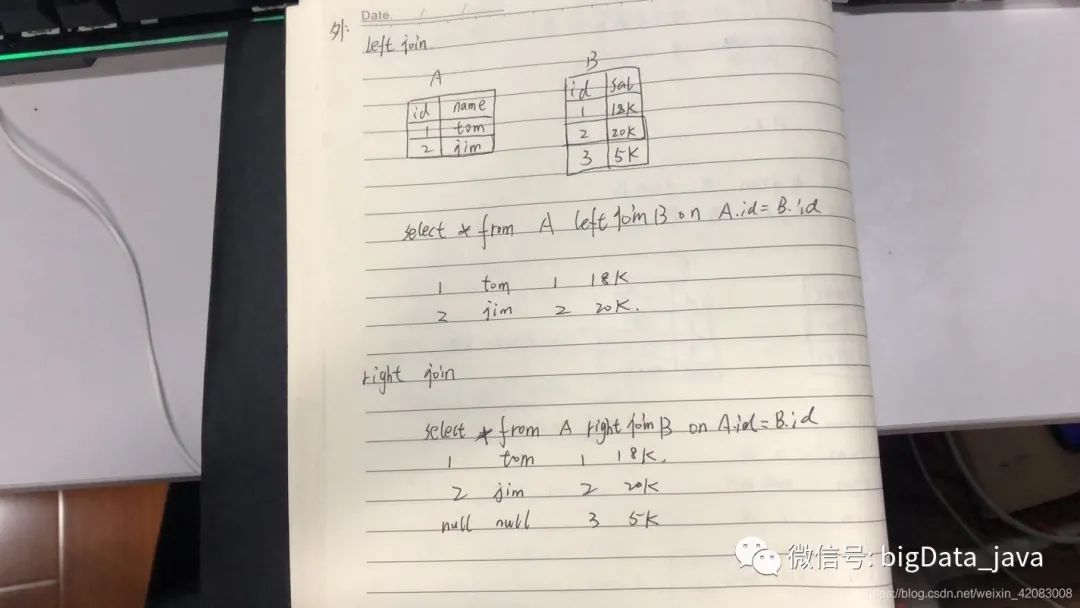 Date. / /
外:
left join
A
B
id name
1 tom
2 jim
id sal
1 18K
2 20K
3 5K
select * from A left join B on A.id = B.id
1 tom 1 18K
2 jim 2 20K.
right join
select * from A right join B on A.id = B.id
1 tom 1 18K.
2 jim 2 20K
null null 3 5K
微信号: bigData_java
https://blog.csdn.net/weixin_42083008